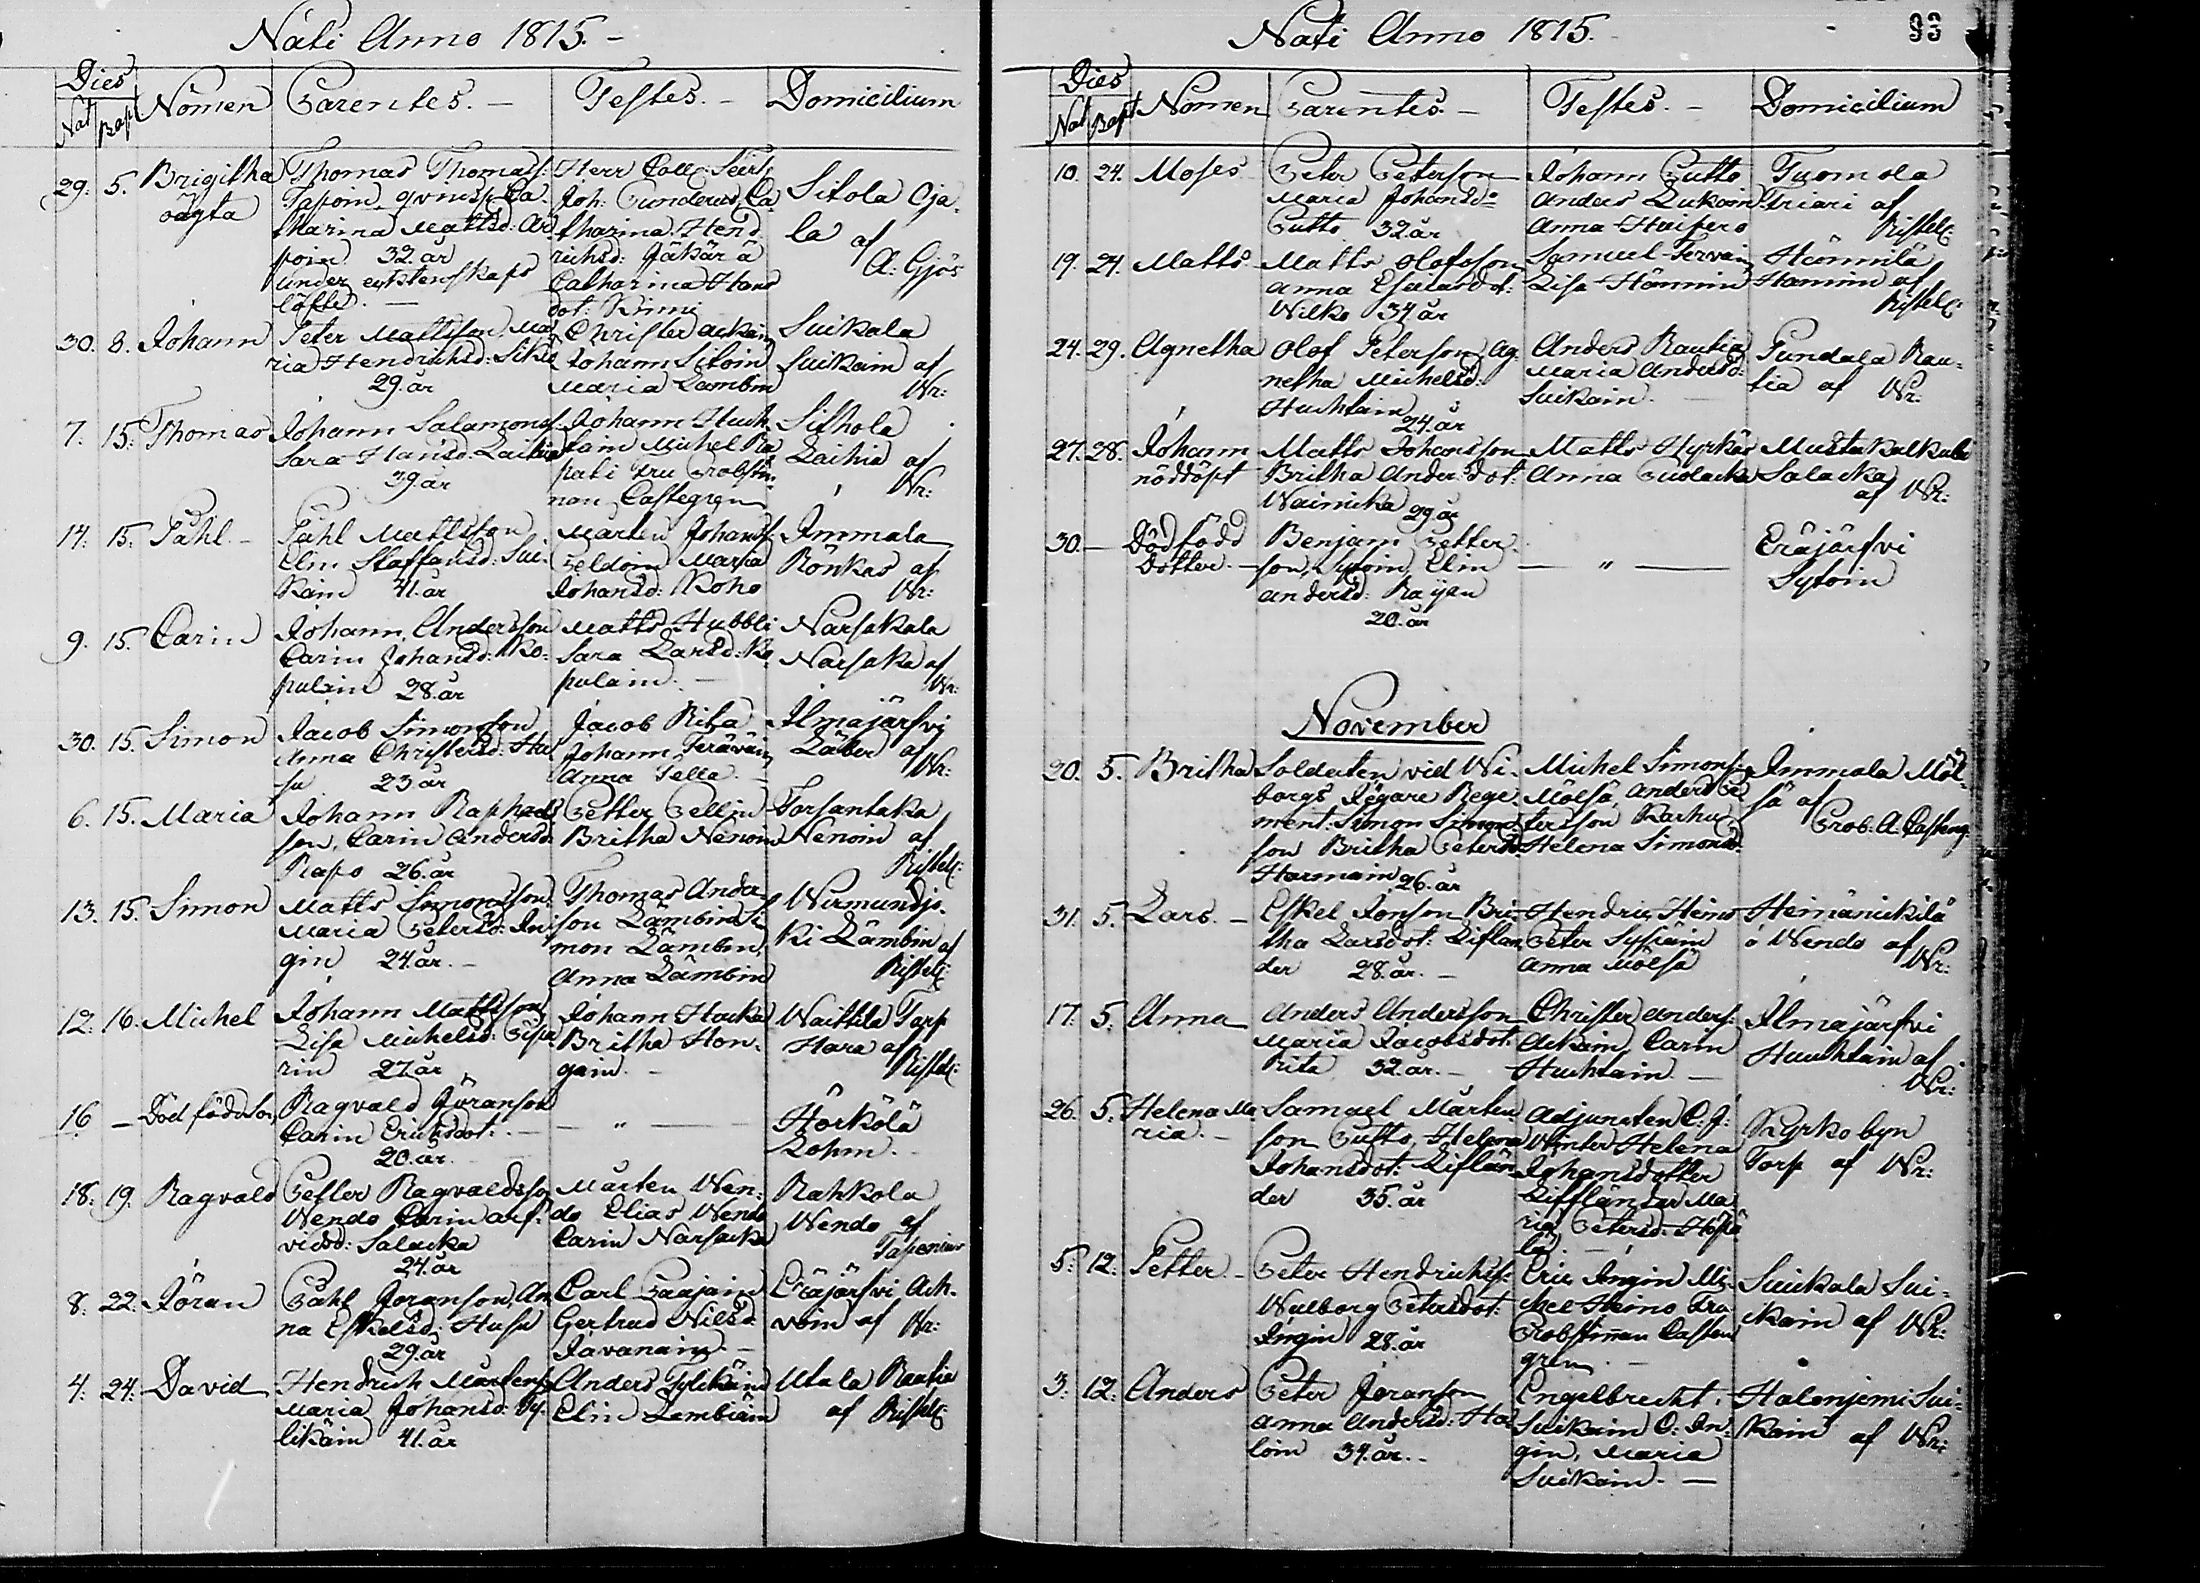 Nati Anno 1815. -
Dies
Nat Bapt Nomen Parentes. - Testes. - Domicilium
29. 5. Brigitha
oägta
Thomas Thomass:
Taposin, qvinsp: Ca-
tharina Mattsd: Ar
poin 32. år
under ecktenskaps
löfte. -
Herr Coll: Secr:
Joh: Ca-
tharina Hend
richsd: Jäkär ä
Catharina Hans
dot: Kinni
Sitola Oja-
la af
A: Gjös
30. 8. Johann
Peter Mattsson Ma-
ria Hendrichsd: Sikiö
29. år
Christer Ackain
Johann Sitoin
Maria Lambin
Suikala
Suikain af
Wr:
7. 15. Thomas
Johann Salamonss
Sara Hansd: Laihia
39. år
Johann Huuh
tain Michel Ra
pati Fru Probstin
nan Castegren
Sithola
Laihia af
Wr:
14. 15. Påhl -
Påhl Mattsson
Elin Staffansd: Sui-
kain 41. år
Mårten Johanss:
Peldoin Maria
Johansd: Koho
Immala
Rönkas af
Wr:
9. 15. Carin
Johann Andersson
Carin Johansd: Ko-
pulain 28. år
Matts Hubbli
Sara Larsd: Ko
pulain. -
Narsakala
Narsaka af
Wr:
30. 15. Simon
Jacob Simonsson
Anna Christersd: Hu
su 23 år
Jacob Rita
Johann Teräväin
Anna Tella. -
Ilmajärfvi
Läber af
Wr:
6. 15. Maria
Johann Raphaels
son, Carin Andersd:
Rapo 26. år
Petter Pellin
Britha Nenoin
Torsantaka
Nenoin af
Ristell:
13. 15. Simon
Matts Simonsson
Maria Petersd: In
gin 24. år. -
Thomas Ander
son Lämbin Si
mon Lämbin,
Anna Lämbin
Wirmundjo-
ki Lämbin af
Ristell:
12. 16. Michel
Johann Mattsson
Lisa Michelsd: Pispa
rin 27. år
Johann Hacka
Britha Hon-
gain. -
Waittila Torp
Hara af
Ristell:
16 - Död född Son
Ragvald Jöranson
Carin Ericksdot: -
20. år. -
- " -
Hörkölä
Kohm. -
18. 19. Ragvald
Petter Ragvaldsson
Wendo Carin Arf-
vidsd: Salacka
24. år
Mårten Wen-
do Elias Wendo
Carin Narsacka
Rahkola
Wendo af
Taponius
8. 22. Jöran
Påhl Joranson, An
na Eskelsd: Husu
29. år
Carl Paajain
Gertrud Nilsd:
Javanain. -
Eräjärfvi Ack-
voin af Wr:
4. 24. David
Hendrich Mårtens
Maria Johansd: Ty-
likäin 41. år
Anders Tylikäin
Elin Lembiäin
Utula Rautia
af Ristell:
Nati Anno 1815. - 93
Dies
Nat Bapt Nomen Parentes. - Testes. - Domicilium
10. 24. Moses
Peter Peterson
Maria Johansd:
Putto 32. år
Johann Putto
Anders Lukain
Anna Haifero
Tuomola
Friari af
Ristell:
19. 24. Matts
Matts Olofsson
Anna Esaiasdot:
Wilko 34 år
Samuel Tervain
Lisa Hännin
Hännilä
Hannin af
Ristell:
24. 29. Agnetha
Olof Peterson Ag-
netha Michelsd:
Huuhtain
24. år
Anders Rautia
Maria Andersd:
Suikain. -
Pundala Rau-
tia af Wr:
27. 28. Johann
nöddöpt
Matts Johansson
Britha Anders dot:
Wainicka 29 år
Matts Hyrkäs
Anna Puolacka
Mustakalkala
Salacka
af Wr:
30. - Död född
Dotter. -
Benjam Petter-
son, Sytoin, Elin
Andersd: Raijan
20. år
- " -
Eräjärfvi
Sytoin
November
20. 5. Britha
Soldaten vid Wi-
borgs Jägare Rege-
ment: Simon Simons-
son Britha Petersd:
Harmain 26. år
Michel Simons:
Mölsä, Anders Pe
tersson Karhu
Helena Simonsd:
Immala Möl-
sä af
Prob: A. Casteng:
31. 5. Lars. -
Eskel Jonson Bri-
tha Larsdot: Liflan
der 28. år. -
Hendric Heino
Peter Syssiäin
Anna Mölsä
Hemänickilä
o Wendo af
Wr:
17. 5. Anna
Anders Andersson
Maria Jacobsdot:
Rita 32. år. -
Christer Anders:
Ackain, Carin
Huuhtain. -
Ilmajärfvi
Huuhtain af
Wr:
26. 5. Helena Ma
ria. -
Samuel Mårten
son Putto, Helena
Johansdot: Liflän
der 35. år
Adjuncten C: J:
Winter Helena
Johansdotter
Lifflander Ma
ria Petersd: Höltä
lä. -
Kyrkobyn
Torp af Wr:
5. 12. Petter. -
Peter Hendrichss:
Walborg Petersdot:
Ingin 28. år
Eric Ingin Mi-
chel Heino Fru
Probstinnan Casten
gren. -
Suikala Sui-
kain af Wr:
3. 12. Anders
Peter Joranson
Anna Andersd: Ha-
loin 34. år. -
Engelbrecht
Suikain O: In-
gin, Maria
Suikain. -
Halenjemi Sui-
kain af Wr: